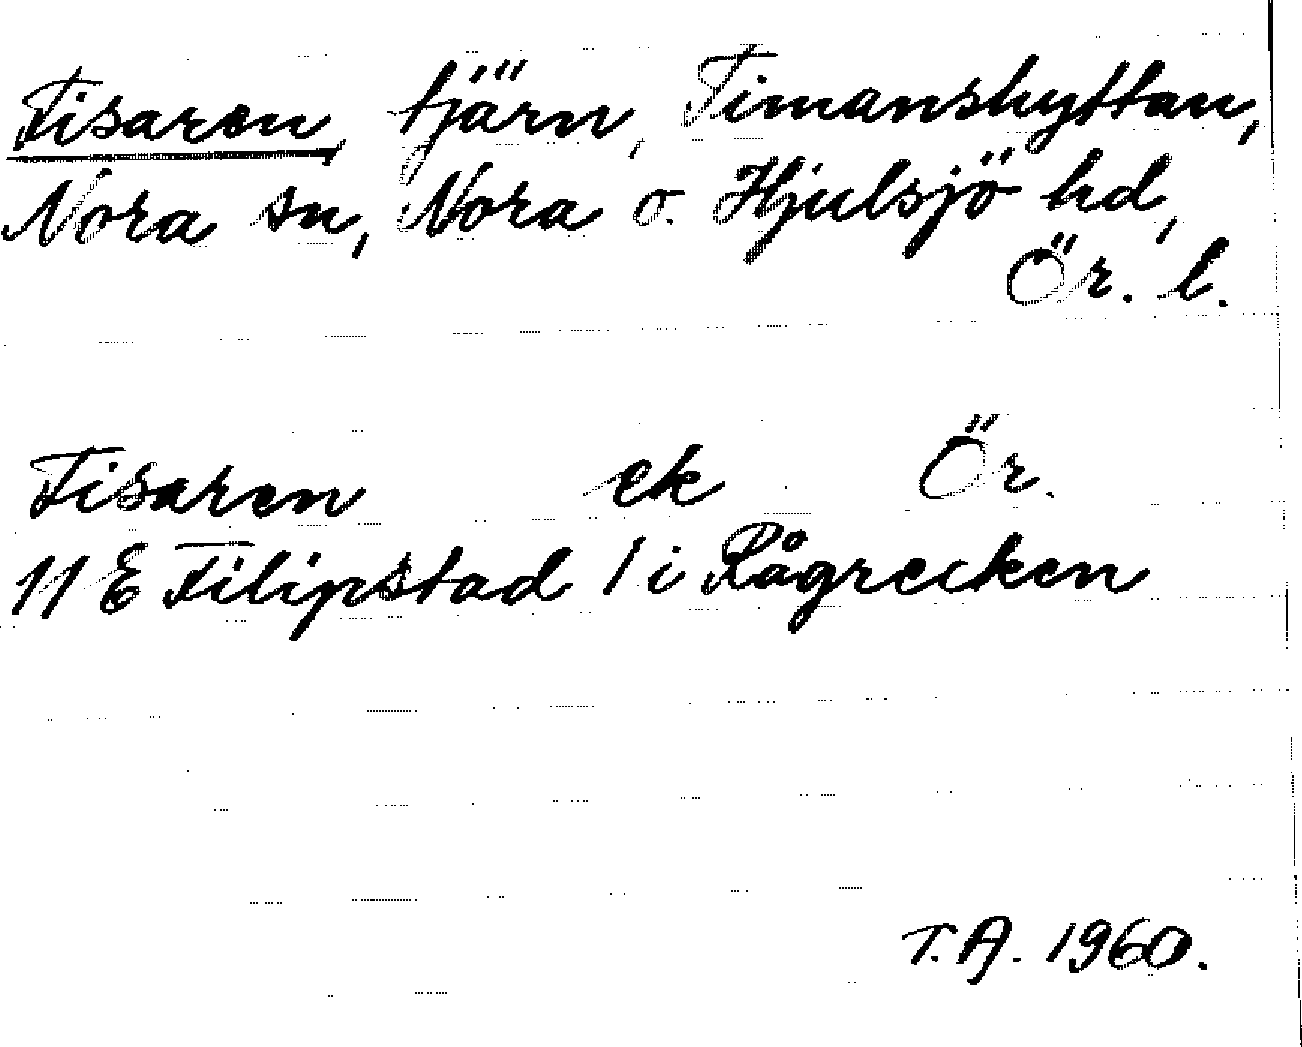 Fisaren, tjärn, Timanshyttan,
Nora sn, Nora o. Hjulsjö hd,
Ör. l.
Fisaren ek Ör.
11 E Filipstad 1 i Rågrecken
T.A. 1960.